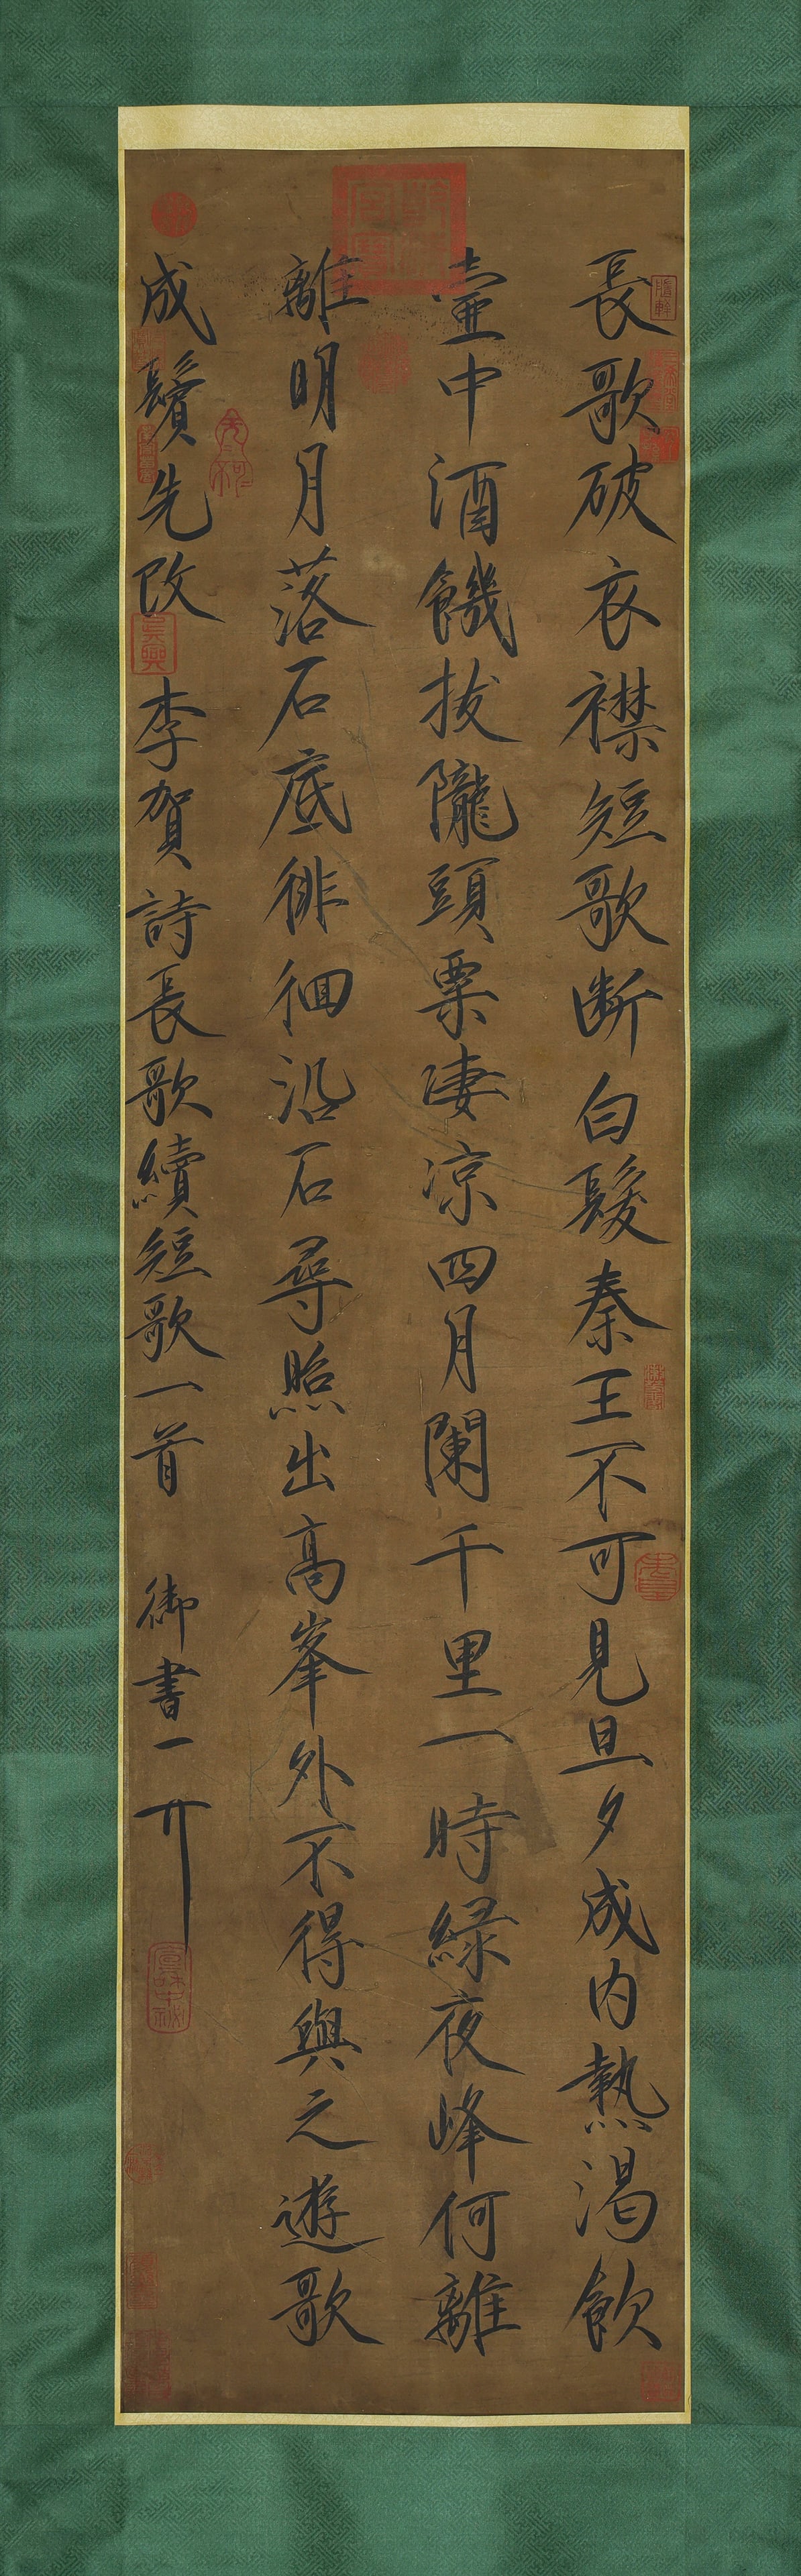 長歌破衣襟短歌斷白髮秦王不可見旦夕成內熱渴飲
壷中酒饑拔隴頭粟凄涼四月闌千里一時綠夜峰何離
離明月落石底徘徊沿石尋照出高峯外不得與之遊歌
成鬢先改 李賀詩長歌續短歌一首 御書
吳興